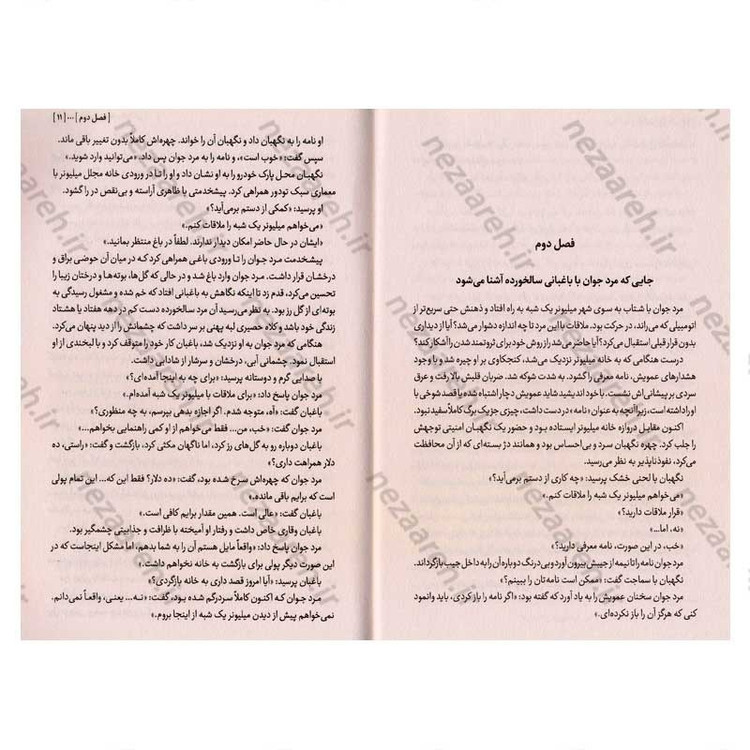 فصل دوم
جایی که مرد جوان با باغبانی سالخورده آشنا می‌شود
مرد جوان با شتاب به سوی شهر میلیونر یک شبه به راه افتاد و ذهنش حتی سریع‌تر از
اتومبیلی که می‌راند، در حرکت بود. ملاقات با این مرد تا چه اندازه دشوار می‌شد؟ آیا از دیداری
بدون قرار قبلی استقبال می‌کرد؟ آیا حاضر می‌شد راز و روش خود برای ثروتمند شدن را آشکار کند؟
درست هنگامی که به خانه میلیونر نزدیک می‌شد، کنجکاوی بر او چیره شد و با وجود
هشدارهای عمویش، نامه معرفی را گشود. به شدت شوکه شد. ضربان قلبش بالا رفت و عرق
سردی بر پیشانی‌اش نشست. با خود اندیشید شاید عمویش دچار اشتباه شده یا قصد شوخی با
او را داشته است، زیرا آنچه به عنوان «نامه» در دست داشت، چیزی جز یک برگ کاملاً سفید نبود.
اکنون مقابل دروازه خانه میلیونر ایستاده بود و حضور یک نگهبان امنیتی توجهش
را جلب کرد. چهره نگهبان سرد و بی‌احساس بود و همانند دژ بسته‌ای که از آن محافظت
می‌کرد، نفوذناپذیر به نظر می‌رسید.
نگهبان با لحنی خشک پرسید: «چه کاری از دستم برمی‌آید؟»
«می‌خواهم میلیونر یک شبه را ملاقات کنم.»
«قرار ملاقات دارید؟»
«نه، اما...»
«خب، در این صورت، نامه معرفی دارید؟»
مرد جوان نامه را تا نیمه از جیبش بیرون آورد و بی‌درنگ دوباره آن را به داخل جیب بازگرداند.
نگهبان با سماجت گفت: «ممکن است نامه‌تان را ببینم؟»
مرد جوان سخنان عمویش را به یاد آورد که گفته بود: «اگر نامه را باز کردی، باید وانمود
کنی که هرگز آن را باز نکرده‌ای.»
[ فصل دوم ] ... [ ۱۱ ]
او نامه را به نگهبان داد و نگهبان آن را خواند. چهره‌اش کاملاً بدون تغییر باقی ماند.
سپس گفت: «خوب است»، و نامه را به مرد جوان پس داد. «می‌توانید وارد شوید.»
نگهبان محل پارک خودرو را به او نشان داد و او را تا در ورودی خانه مجلل میلیونر با
معماری سبک تودور همراهی کرد. پیشخدمتی با ظاهری آراسته و بی‌نقص در را گشود.
او پرسید: «کمکی از دستم برمی‌آید؟»
«می‌خواهم میلیونر یک شبه را ملاقات کنم.»
«ایشان در حال حاضر امکان دیدار ندارند. لطفاً در باغ منتظر بمانید.»
پیشخدمت مرد جوان را تا ورودی باغی همراهی کرد که در میان آن حوضی براق و
درخشان قرار داشت. مرد جوان وارد باغ شد و در حالی که گل‌ها، بوته‌ها و درختان زیبا را
تحسین می‌کرد، قدم زد تا اینکه نگاهش به باغبانی افتاد که خم شده و مشغول رسیدگی به
بوته‌ای از گل رز بود. به نظر می‌رسید آن مرد سالخورده دست کم در دهه هفتاد یا هشتاد
زندگی خود باشد و کلاه حصیری لبه پهنی بر سر داشت که چشمانش را از دید پنهان می‌کرد.
هنگامی که مرد جوان به او نزدیک شد، باغبان کار خود را متوقف کرد و با لبخندی از او
استقبال نمود. چشمانی آبی، درخشان و سرشار از شادابی داشت.
با صدایی گرم و دوستانه پرسید: «برای چه به اینجا آمده‌ای؟»
مرد جوان پاسخ داد: «برای ملاقات با میلیونر یک شبه آمده‌ام.»
باغبان گفت: «آه، متوجه شدم. اگر اجازه بدهی بپرسم، به چه منظوری؟»
مرد جوان گفت: «خب، من... فقط می‌خواهم از او کمی راهنمایی بخواهم...»
باغبان دوباره رو به گل‌های رز کرد، اما ناگهان مکثی کرد، بازگشت و گفت: «راستی، ده
دلار همراهت داری؟»
مرد جوان که چهره‌اش سرخ شده بود، گفت: «ده دلار؟ فقط این که... این تمام پولی
است که برایم باقی مانده.»
باغبان گفت: «عالی است. همین مقدار برایم کافی است.»
باغبان وقاری خاص داشت و رفتار او آمیخته با ظرافت و جذابیتی چشمگیر بود.
مرد جوان پاسخ داد: «واقعاً مایل هستم آن را به شما بدهم، اما مشکل اینجاست که در
این صورت دیگر پولی برای بازگشت به خانه نخواهم داشت.»
باغبان پرسید: «آیا امروز قصد داری به خانه بازگردی؟»
مرد جوان که اکنون کاملاً سردرگم شده بود، گفت: «نه... یعنی، واقعاً نمی‌دانم.
نمی‌خواهم پیش از دیدن میلیونر یک شبه از اینجا بروم.»
nezaareh.ir